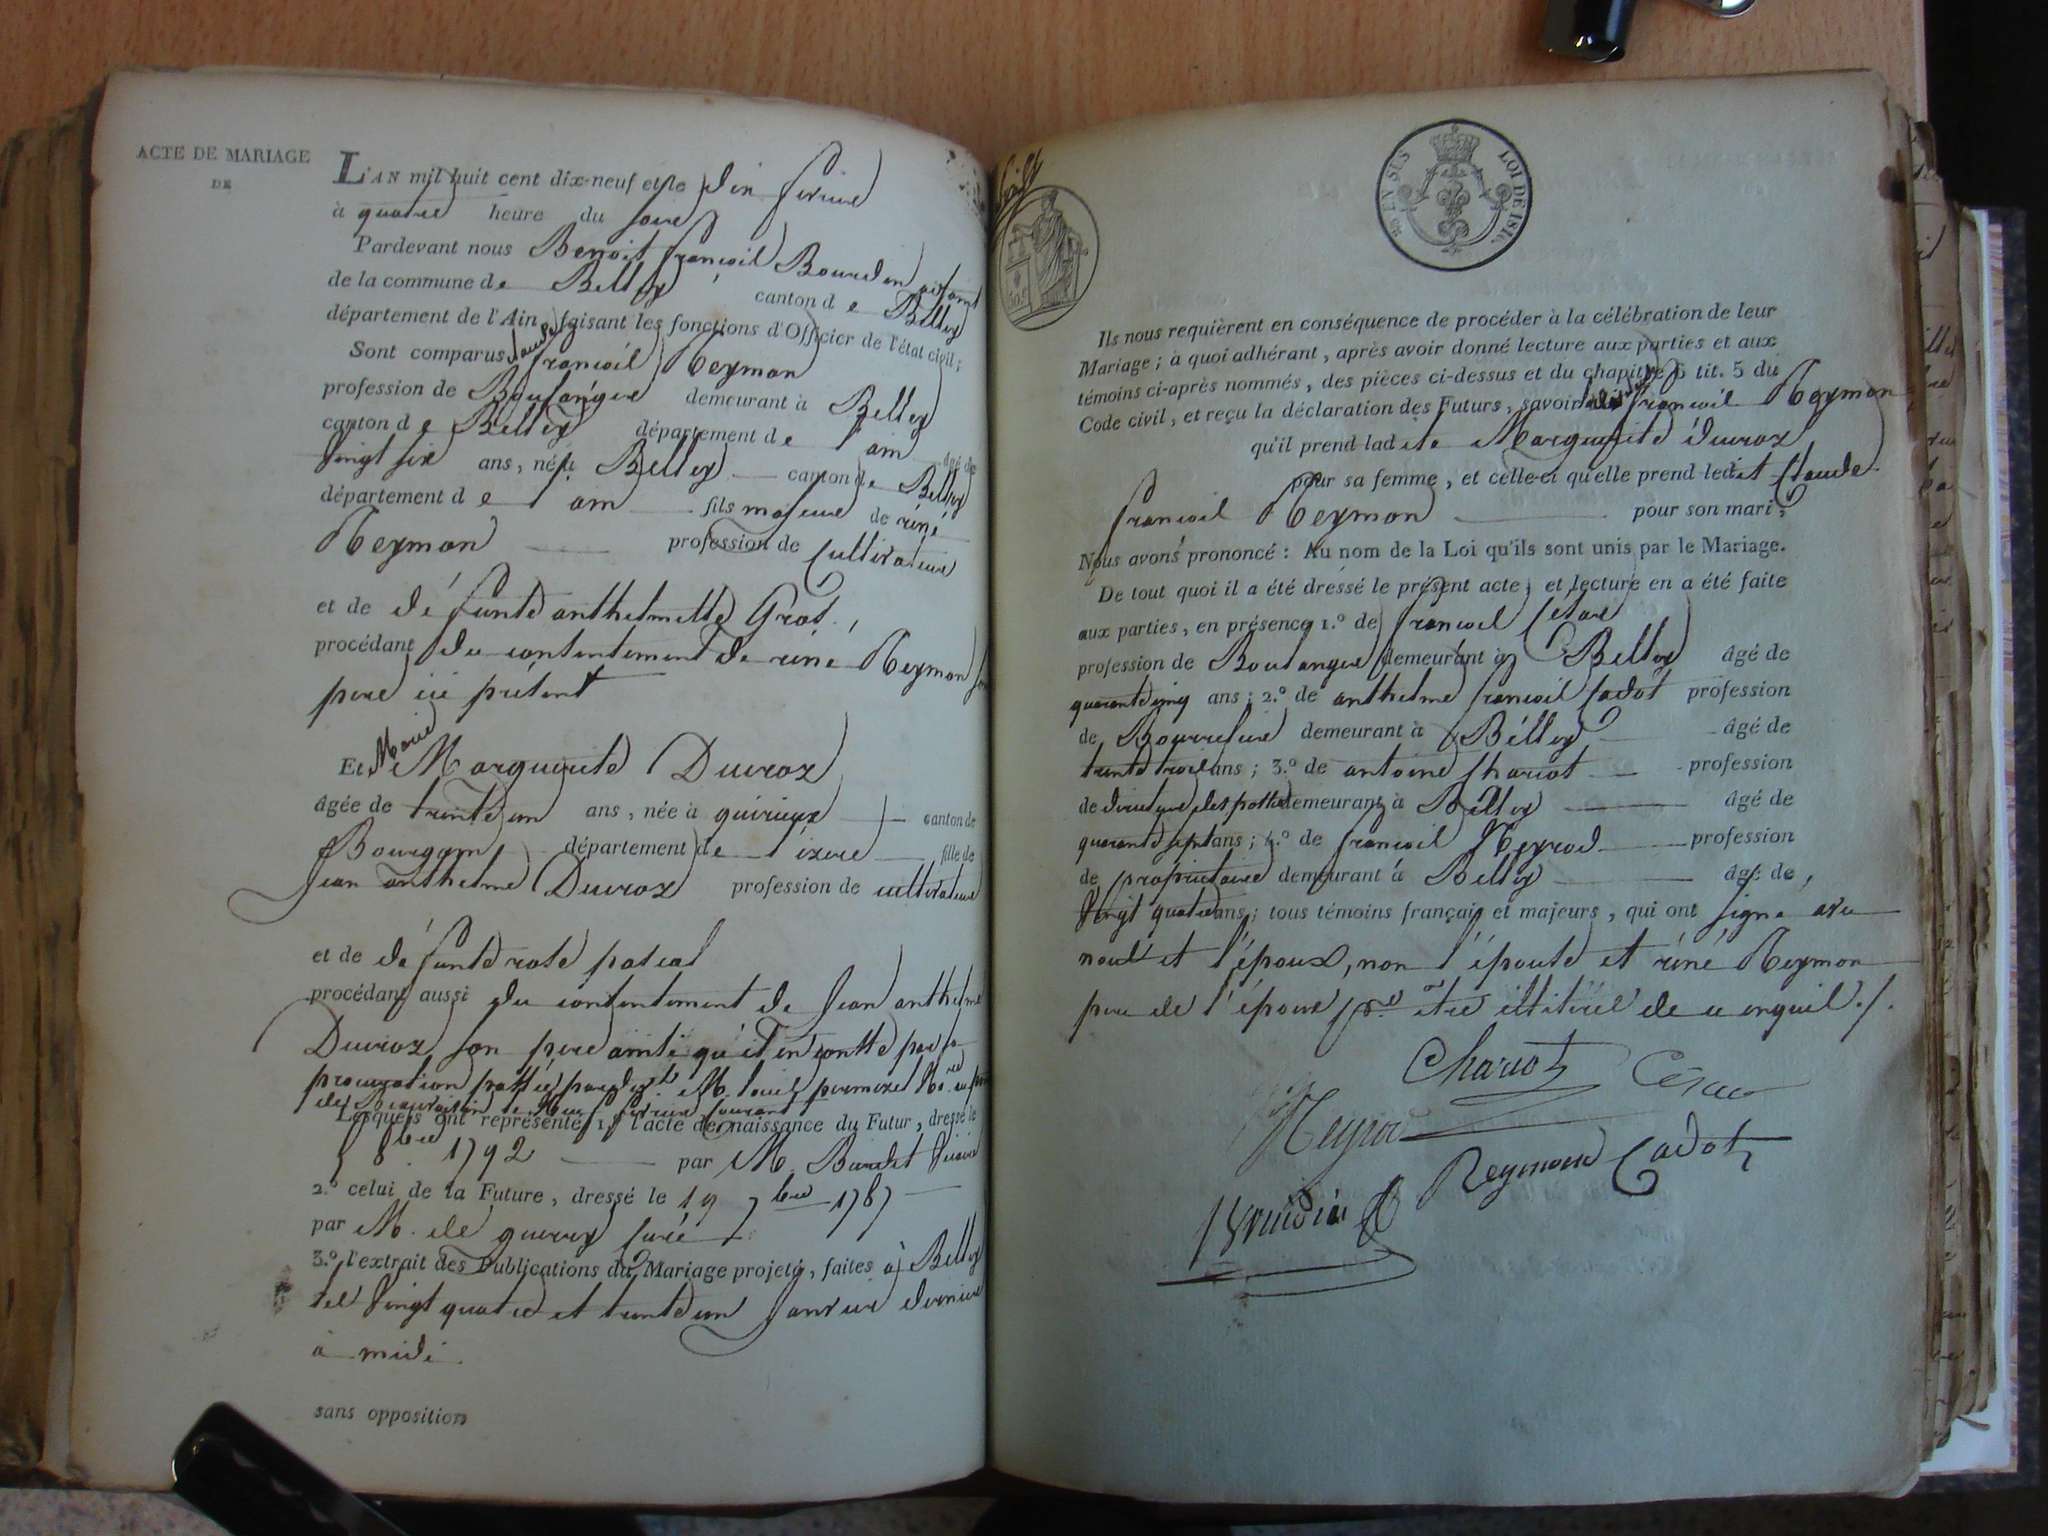 ACTE DE MARIAGE
DE
L'AN mil huit cent dix-neuf et le dix fevrier
à quatre heure du soir
Pardevant nous Benoit françois Bourdin
de la commune de Belley canton de Belley
département de l'Ain, faisant les fonctions d'Officier de l'état civil;
Sont comparus Claude françois Reymon
profession de Boulanger demeurant à Belley
canton de Belley département de l'ain âgé de
vingt six ans, né à Belley canton de Belley
département de l'ain fils majeur de réné
Reymon profession de Cultivateur
et de défunte anthelmette Grot
procédant du consentement de réné Reymon son
pere ici présent
Et Marie Marguerite Ducroz
âgée de trente un ans, née à quirieux canton de
Bourgoin département de l'izere fille de
Jean anthelme Ducroz profession de cultivateur
et de défunte rose pascal
procédant aussi du consentement de Jean anthelme
Ducroz son pere ainsi qu'il en conste par sa
procuration passée par M. louis
le neuf fevrier courant
Lesquels ont représenté 1.° l'acte de naissance du Futur, dressé le
5 8bre 1792 par M. Burdet vicaire
2.° celui de la Future, dressé le 19 7bre 1787
par M. de curé
3.° l'extrait des Publications du Mariage projeté, faites à Belley
les vingt quatre et trente un Janvier dernier
à midi
sans opposition
LOI DE 1816
EN SUS
Ils nous requièrent en conséquence de procéder à la célébration de leur
Mariage; à quoi adhérant, après avoir donné lecture aux parties et aux
témoins ci-après nommés, des pièces ci-dessus et du chapitre 6 tit. 5 du
Code civil, et reçu la déclaration des Futurs, savoir françois Reymon
qu'il prend ladite Marguerite ducroz
pour sa femme, et celle-ci qu'elle prend ledit Claude
françois Reymon pour son mari;
Nous avons prononcé: Au nom de la Loi qu'ils sont unis par le Mariage.
De tout quoi il a été dressé le présent acte, et lecture en a été faite
aux parties, en présence 1.° de françois Cézar
profession de Boulanger demeurant à Belley âgé de
quarante cinq ans; 2.° de anthelme françois Cadot profession
de Bourrelier demeurant à Belley âgé de
trente trois ans; 3.° de antoine Chariot profession
de directeur des postes demeurant à Belley âgé de
quarante sept ans; 4.° de françois Neyrod profession
de propriétaire demeurant à Belley âgé de
vingt quatre ans; tous témoins français et majeurs, qui ont signé avec
nous et l'époux, non l'épouse et réné Reymon
pere de l'époux pr. être illitirés de ce enquis ./.
Chariot Cézar
Neyrod
Reymond Cadot